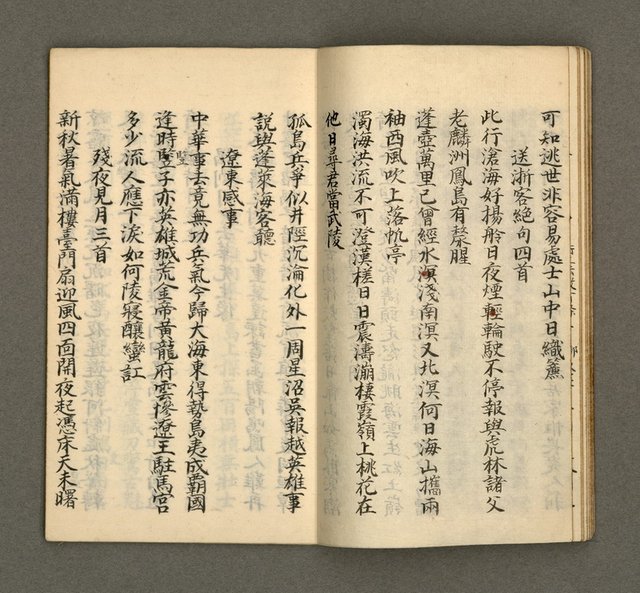 可知逃世非容易處士山中日織簾
送浙客絶句四首
此行滄海好揚舲日夜煙輕輪駛不停報與虎林諸父
老麟洲鳳島有漦腥
蓬壺萬里已曾經水淺南溟又北溟何日海山攜兩
袖西風吹上落帆亭
濁海洪流不可澄漢槎日日震濤漰棲霞嶺上桃花在
他日尋君當武陵
孤島兵爭似井陘沉淪化外一周星沼吳報越英雄事
說與蓬萊海客聽
遼東感事
中華事去竟無功兵氣今歸大海東得勢島夷成霸國
逢時豎子亦英雄城荒金帝黃龍府雲慘遼王駐馬宮
豎
多少流人應下淚如何陵寢釀蠻訌
殘夜見月三首
新秋暑氣滿樓臺門扇迎風四面開夜起憑床天未曙